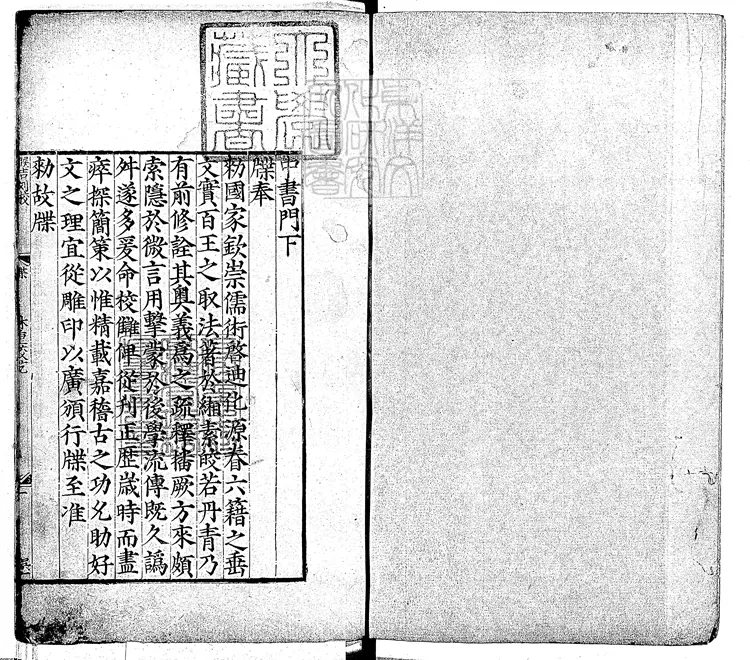 中書門下
牒奉
勑國家欽崇儒術啓迪化源眷六籍之垂
文實百王之取法著於緗素皎若丹青乃
有前修詮其奧義爲之疏釋播厥方來頗
索隱於微言用擊蒙於後學流傳旣久譌
舛遂多爰命校讎俾從刋正歷歲時而盡
瘁探簡策以惟精載嘉稽古之功允助好
文之理宜從雕印以廣頒行牒至准
勑故牒